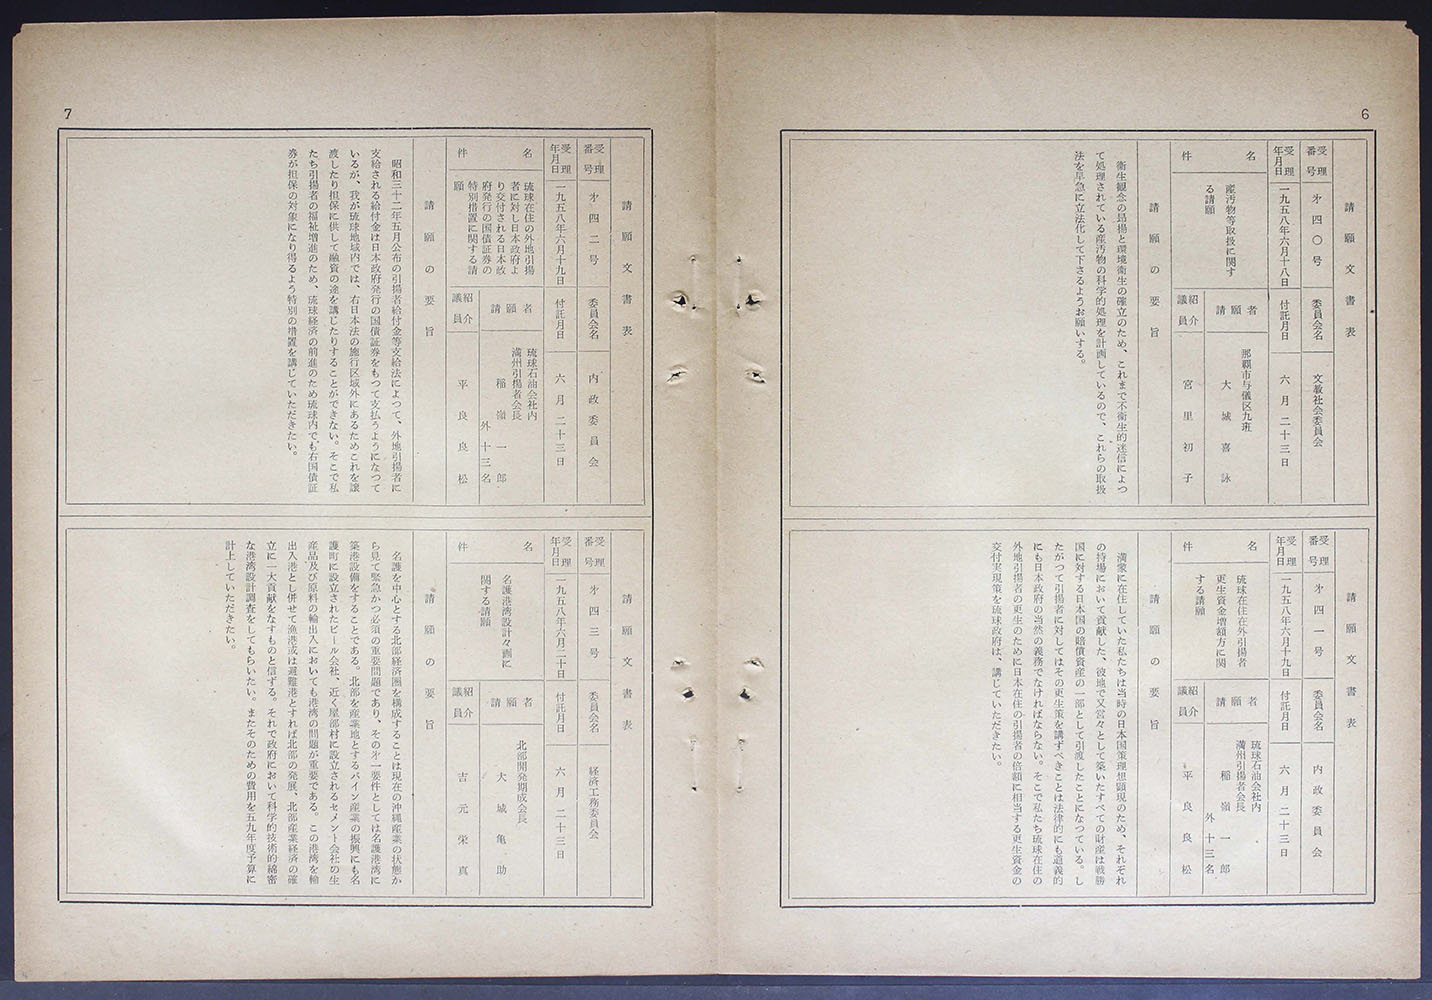 6
請願文書表
受理番号
才四〇号
委員会名
文教社会委員会
受理年月日
一九五八年六月十八日
付託月日
六月二十三日
件名
産汚物等取扱に関す
る請願
請願者
那覇市与儀区九班
大城喜詠
紹介議員
宮里初子
請願の要旨
衛生観念の昂揚と環境衛生の確立のため、これまで不衛生的迷信によつ
て処理されている産汚物の科学的処理を計画しているので、これらの取扱
法を早急に立法化して下さるようお願いする。
請願文書表
受理番号
才四一号
委員会名
内政委員会
受理年月日
一九五八年六月十九日
付託月日
六月二十三日
件名
琉球在住在外引揚者
更生資金増額方に関
する請願
請願者
琉球石油会社内
満州引揚者会長
稲嶺一郎
外十三名
紹介議員
平良良松
請願の要旨
満蒙に在住していた私たちは当時の日本国策理想顕現のため、それぞれ
の持場において貢献した、彼地で又営々として築いたすべての財産は戦勝
国に対する日本国の賠償資産の一部として引渡したことになつている。し
たがつて引揚者に対してはその更生策を講ずべきことは法律的にも道義的
にも日本政府の当然の義務でなければならない。そこで私たち琉球在住の
外地引揚者の更生のために日本在住の引揚者の倍額に相当する更生資金の
交付実現策を琉球政府は、講じていただきたい。
7
請願文書表
受理番号
才四二号
委員会名
内政委員会
受理年月日
一九五八年六月十九日
付託月日
六月二十三日
件名
琉球在住の外地引揚
者に対し日本政府よ
り交付される日本政
府発行の国債証券の
特別措置に関する請
願
請願者
琉球石油会社内
満州引揚者会長
稲嶺一郎
外十三名
紹介議員
平良良松
請願の要旨
昭和三十二年五月公布の引揚者給付金等支給法によつて、外地引揚者に
支給される給付金は日本政府発行の国債証券をもつて支払うようになつて
いるが、我が琉球地域内では、右日本法の施行区域外にあるためこれを譲
渡したり担保に供して融資の途を講じたりすることができない。そこで私
たち引揚者の福祉増進のため、琉球経済の前進のため琉球内でも右国債証
券が担保の対象になり得るよう特別の措置を講じていただきたい。
請願文書表
受理番号
才四三号
委員会名
経済工務委員会
受理年月日
一九五八年六月二十日
付託月日
六月二十三日
件名
名護港湾設計々画に
関する請願
請願者
北部開発期成会長
大城亀助
紹介議員
吉元栄真
請願の要旨
名護を中心とする北部経済圏を構成することは現在の沖縄産業の状態か
ら見て緊急かつ必須の重要問題であり、その才一要件としては名護港湾に
築港設備をすることである。北部を産業地とするパイン産業の振興にも名
護町に設立されたビール会社、近く屋部村に設立されるセメント会社の生
産品及び原料の輸出入においても港湾の問題が重要である。この港湾を輸
出入港とし併せて漁港或は避難港とすれば北部の発展、北部産業経済の確
立に一大貢献をなすものと信ずる。それで政府において科学的技術的綿密
な港湾設計調査をしてもらいたい。またそのための費用を五九年度予算に
計上していただきたい。